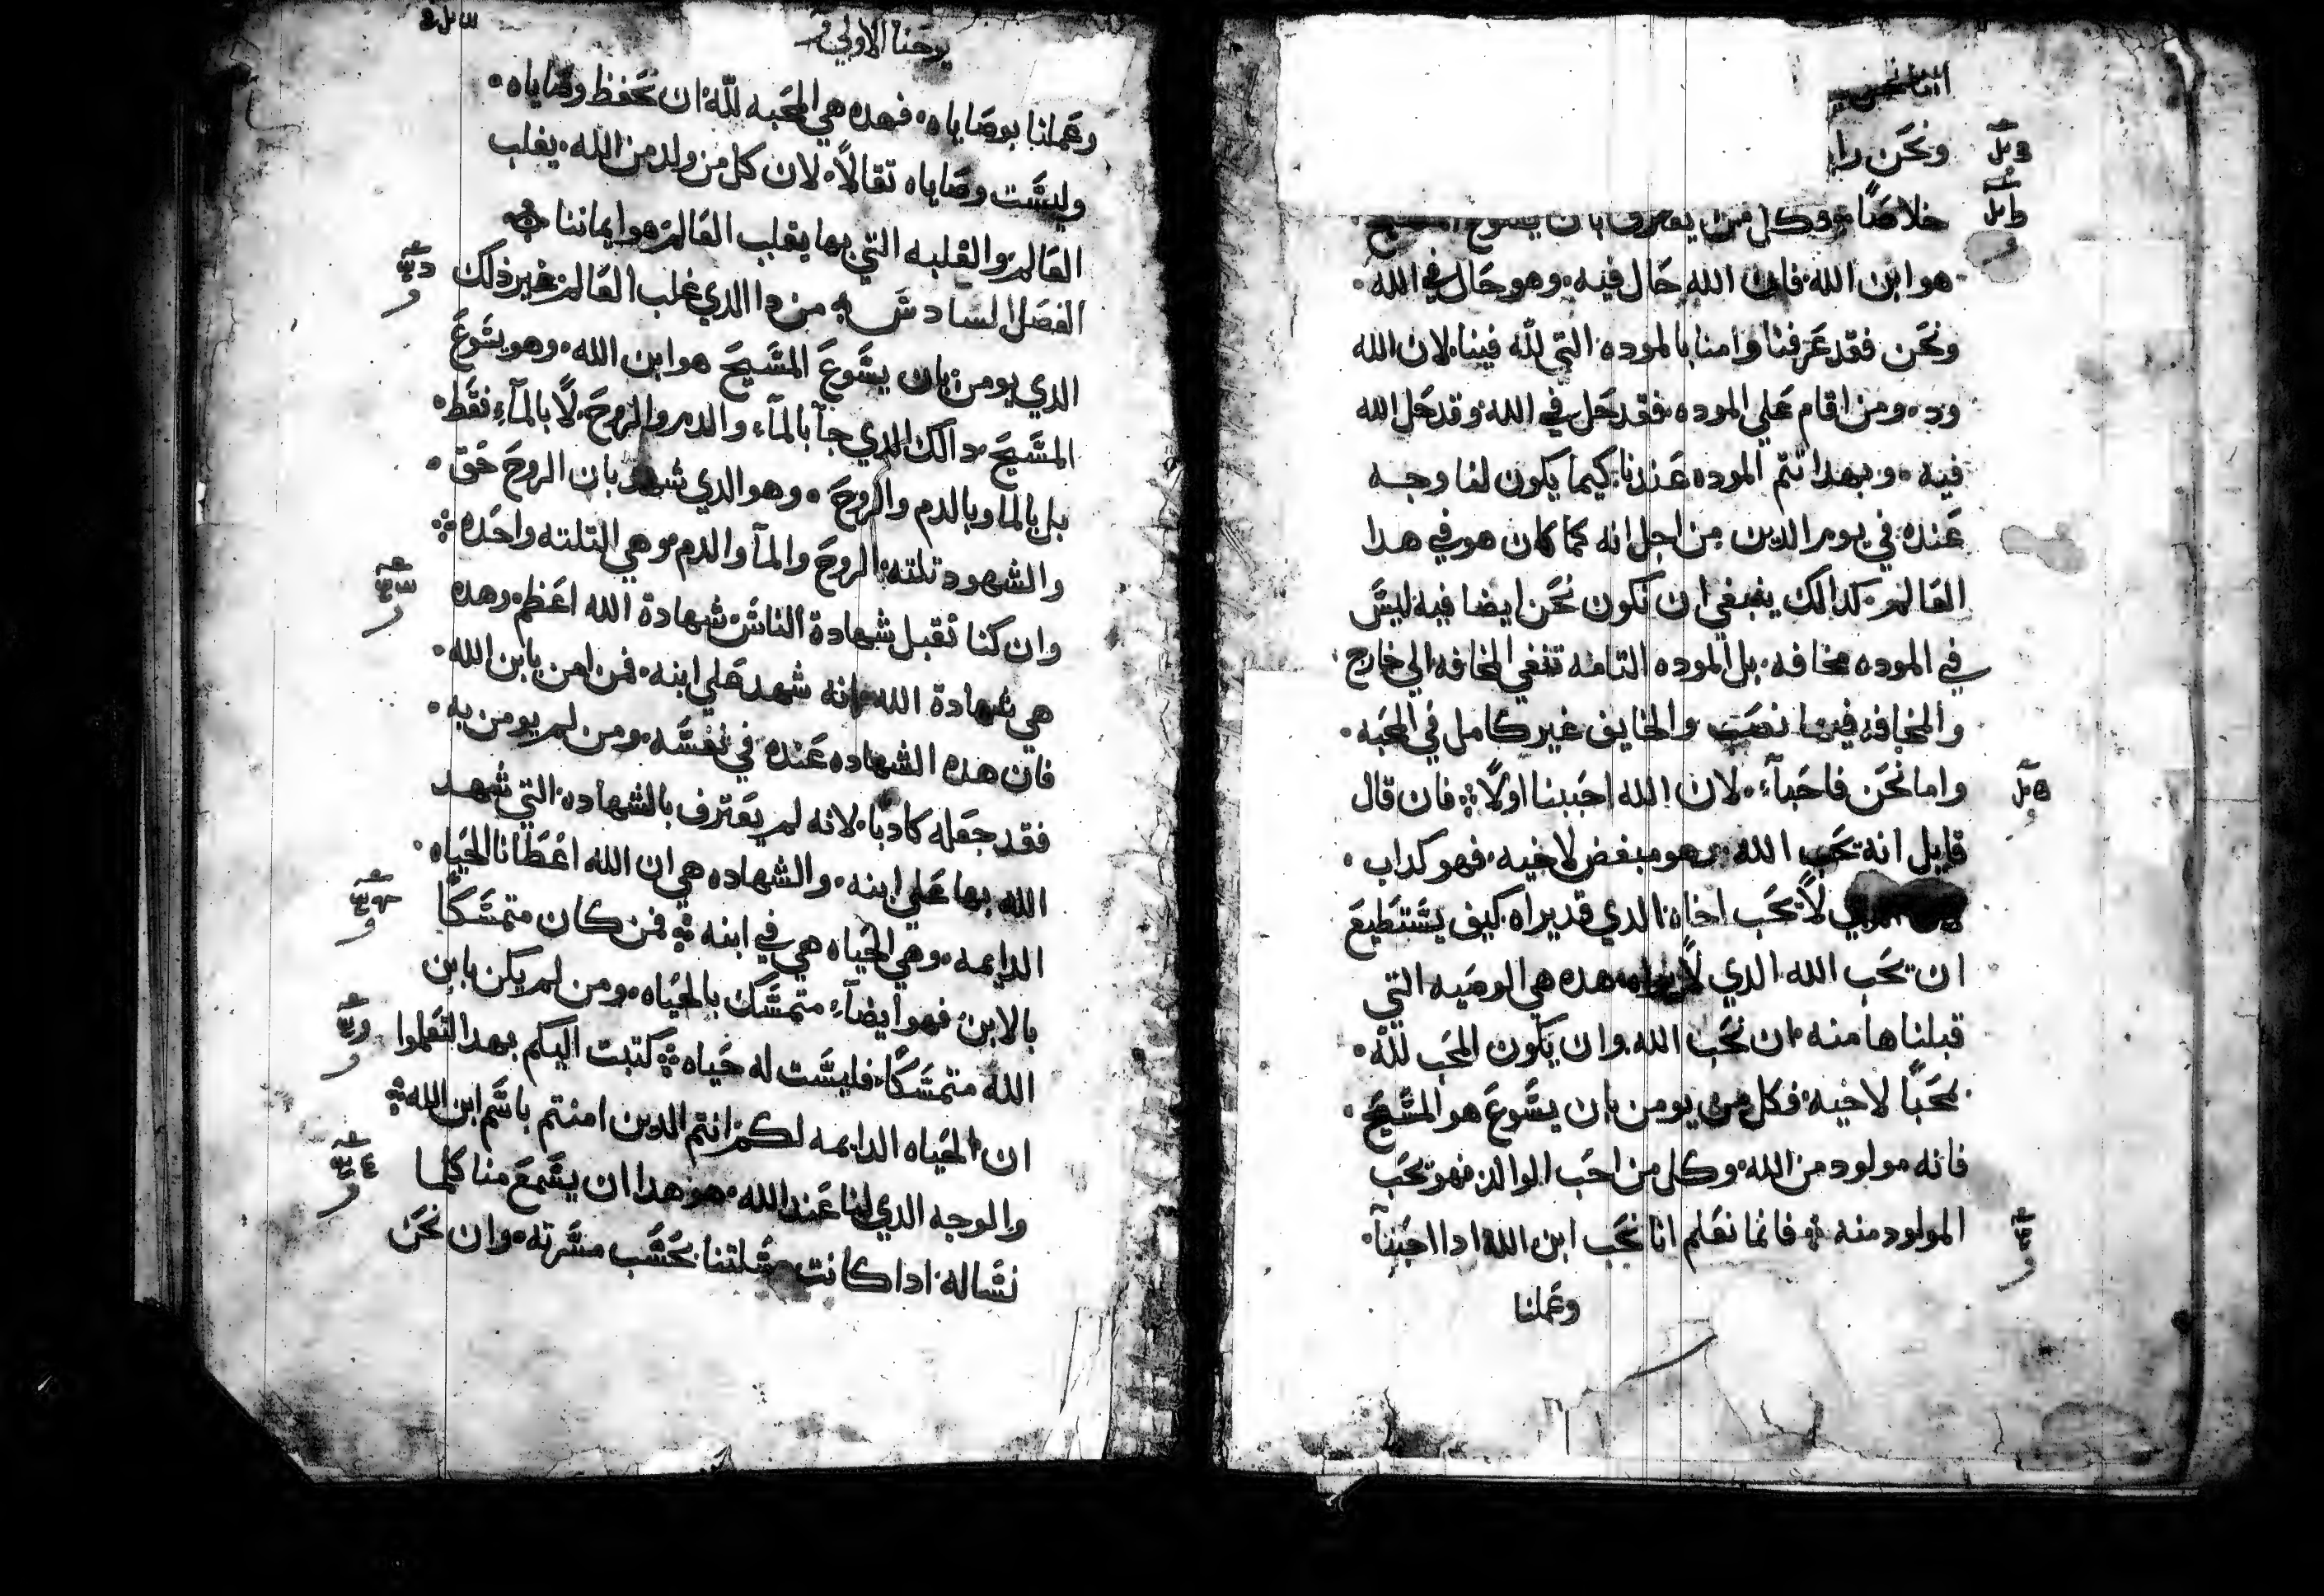 ونحن را
خلاصًا وكل من يعترف بان يسوع المسيح
هو ابن الله فان الله حال فيه وهو حال في الله
ونحن فقد عرفنا وامنا بالموده التي لله فينا لان الله
ود ومن اقام علي الموده فقد حل في الله وقد حل الله
فيه وبهدا تتم الموده عندنا كيما يكون لنا وجه
عنده في يوم الدين من اجل انه كما كان هو في هدا
العالم كدالك ينبغي ان نكون نحن ايضا فيه ليس
في الموده مخافه بل الموده التامه تنفي المخافه الي خارج
والمخافه فيها نصب والخايف غير كامل في المحبه
واما نحن فاحباء لان الله احببنا اولًا فان قال
قايل انه يحب الله وهو مبغض لاخيه فهو كداب
الدي لا يحب اخاه الدي قد يراه كيف يستطيع
ان يحب الله الدي لا يراه هده هي الوصيه التي
قبلناها منه ان نحب الله وان يكون المحب لله
محبًا لاخيه فكل من يومن بان يسوع هو المسيح
فانه مولود من الله وكل من احب الوالد فهو يحب
المولود منه فانما نعلم انا نحب ابن الله ادا احببنا
وعملنا
يوحنا الاولي
وعملنا بوصاياه فهده هي المحبه لله ان نحفظ وصاياه
وليست وصاياه ثقالًا لان كل من ولد من الله يغلب
العالم والغلبه التي بها يغلب العالم هو ايماننا
الفصل السادس من دا الدي غلب العالم غير ذلك
الدي يومن بان يسوع المسيح هو ابن الله وهو يسوع
المسيح دالك الدي جآ بالمآء والدم والروح لا بالمآء فقط
بل بالما وبالدم والروح وهو الدي شهد بان الروح حق
والشهود تلته الروح والمآ والدم وهي التلته واحده
وان كنا نقبل شهادة الناس شهادة الله اعظم وهده
هي شهادة الله انه شهد علي ابنه فمن امن بابن الله
فان هده الشهاده عنده في نفسه ومن لم يومن به
فقد جعله كادبًا لانه لم يعترف بالشهاده التي شهد
الله بها علي ابنه والشهاده هي ان الله اعطانا الحياه
الدايمه وهي الحياه هي في ابنه فمن كان متمسكًا
بالابن فهو ايضآء متمسك بالحياه ومن لم يكن بابن
الله متمسكًا فليست له حياه كتبت اليكم بهدا لتعلموا
ان الحياه الدايمه لكم انتم الدين امنتم باسم ابن الله
والوجه الدي لنا عند الله هو هدا ان يسمع منا كلما
نساله ادا كانت مسلتنا بحسب مسرته وان نحن